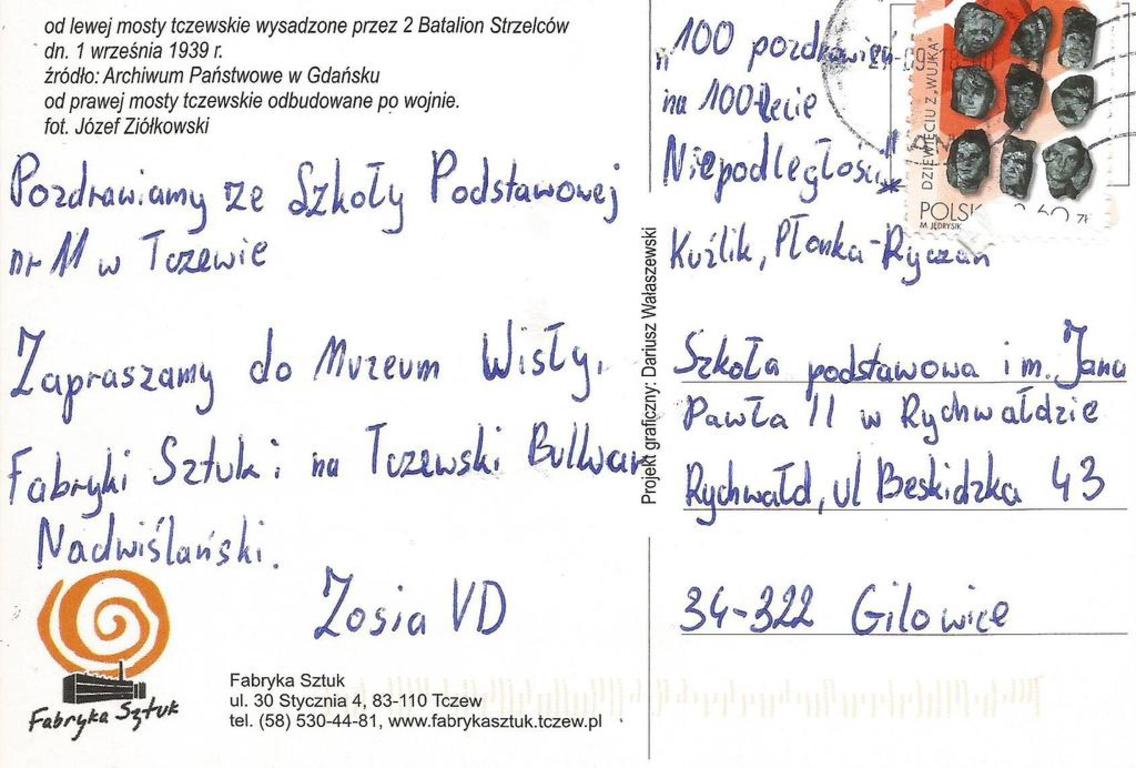 od lewej mosty tczewskie wysadzone przez 2 Batalion Strzelców
dn. 1 września 1939 r.
źródło: Archiwum Państwowe w Gdańsku
od prawej mosty tczewskie odbudowane po wojnie.
fot. Józef Ziółkowski
Pozdrawiamy ze Szkoły Podstawowej
nr 11 w Tczewie
Zapraszamy do Muzeum Wisły,
Fabryki Sztuk i na Tczewski Bullwar
Nadwiślański.
Zosia VD
Fabryka Sztuk
Fabryka Sztuk
ul. 30 Stycznia 4, 83-110 Tczew
tel. (58) 530-44-81, www.fabrykasztuk.tczew.pl
Projekt graficzny: Dariusz Wałaszewski
"100 pozdrowień
na 100-lecie
Niepodległości"
Kuźlik, Płonka-Ryczań
Szkoła podstawowa im. Jana
Pawła II w Rychwałdzie
Rychwałd, ul Beskidzka 43
34-322 Gilowice
DZIEWIĘCIU Z „WUJKA"
POLSK
M. JĘDRYSIK